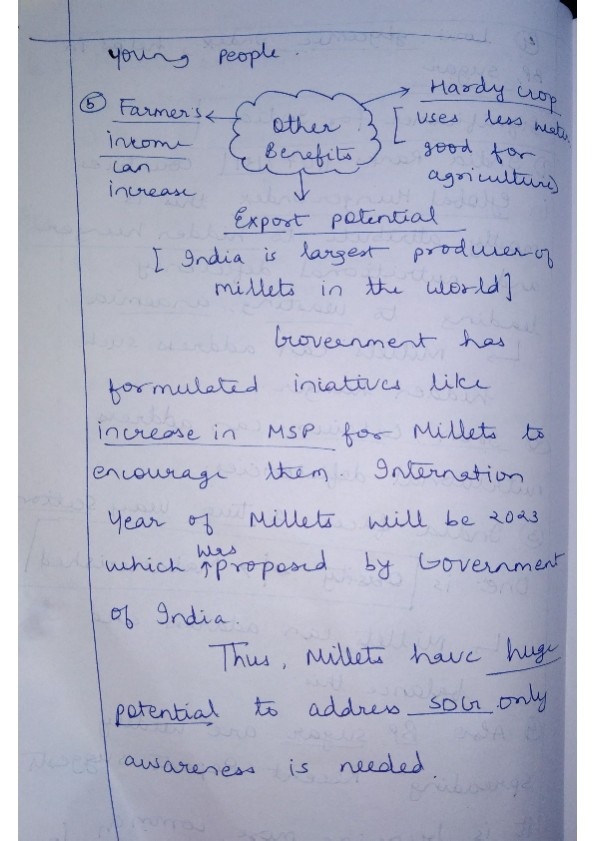 young people.
⑤ Farmer's
income
can
increase
Other
Benefits
Hardy crop
[ uses less water
good for
agriculture]
Export potential
[ India is largest producer of
millets in the world]
Government has
formulated iniatives like
increase in MSP for Millets to
encourage them Internation
Year of Millets will be 2023
which was proposed by Government
of India.
Thus, Millets have huge
potential to address SDG only
awareness is needed.